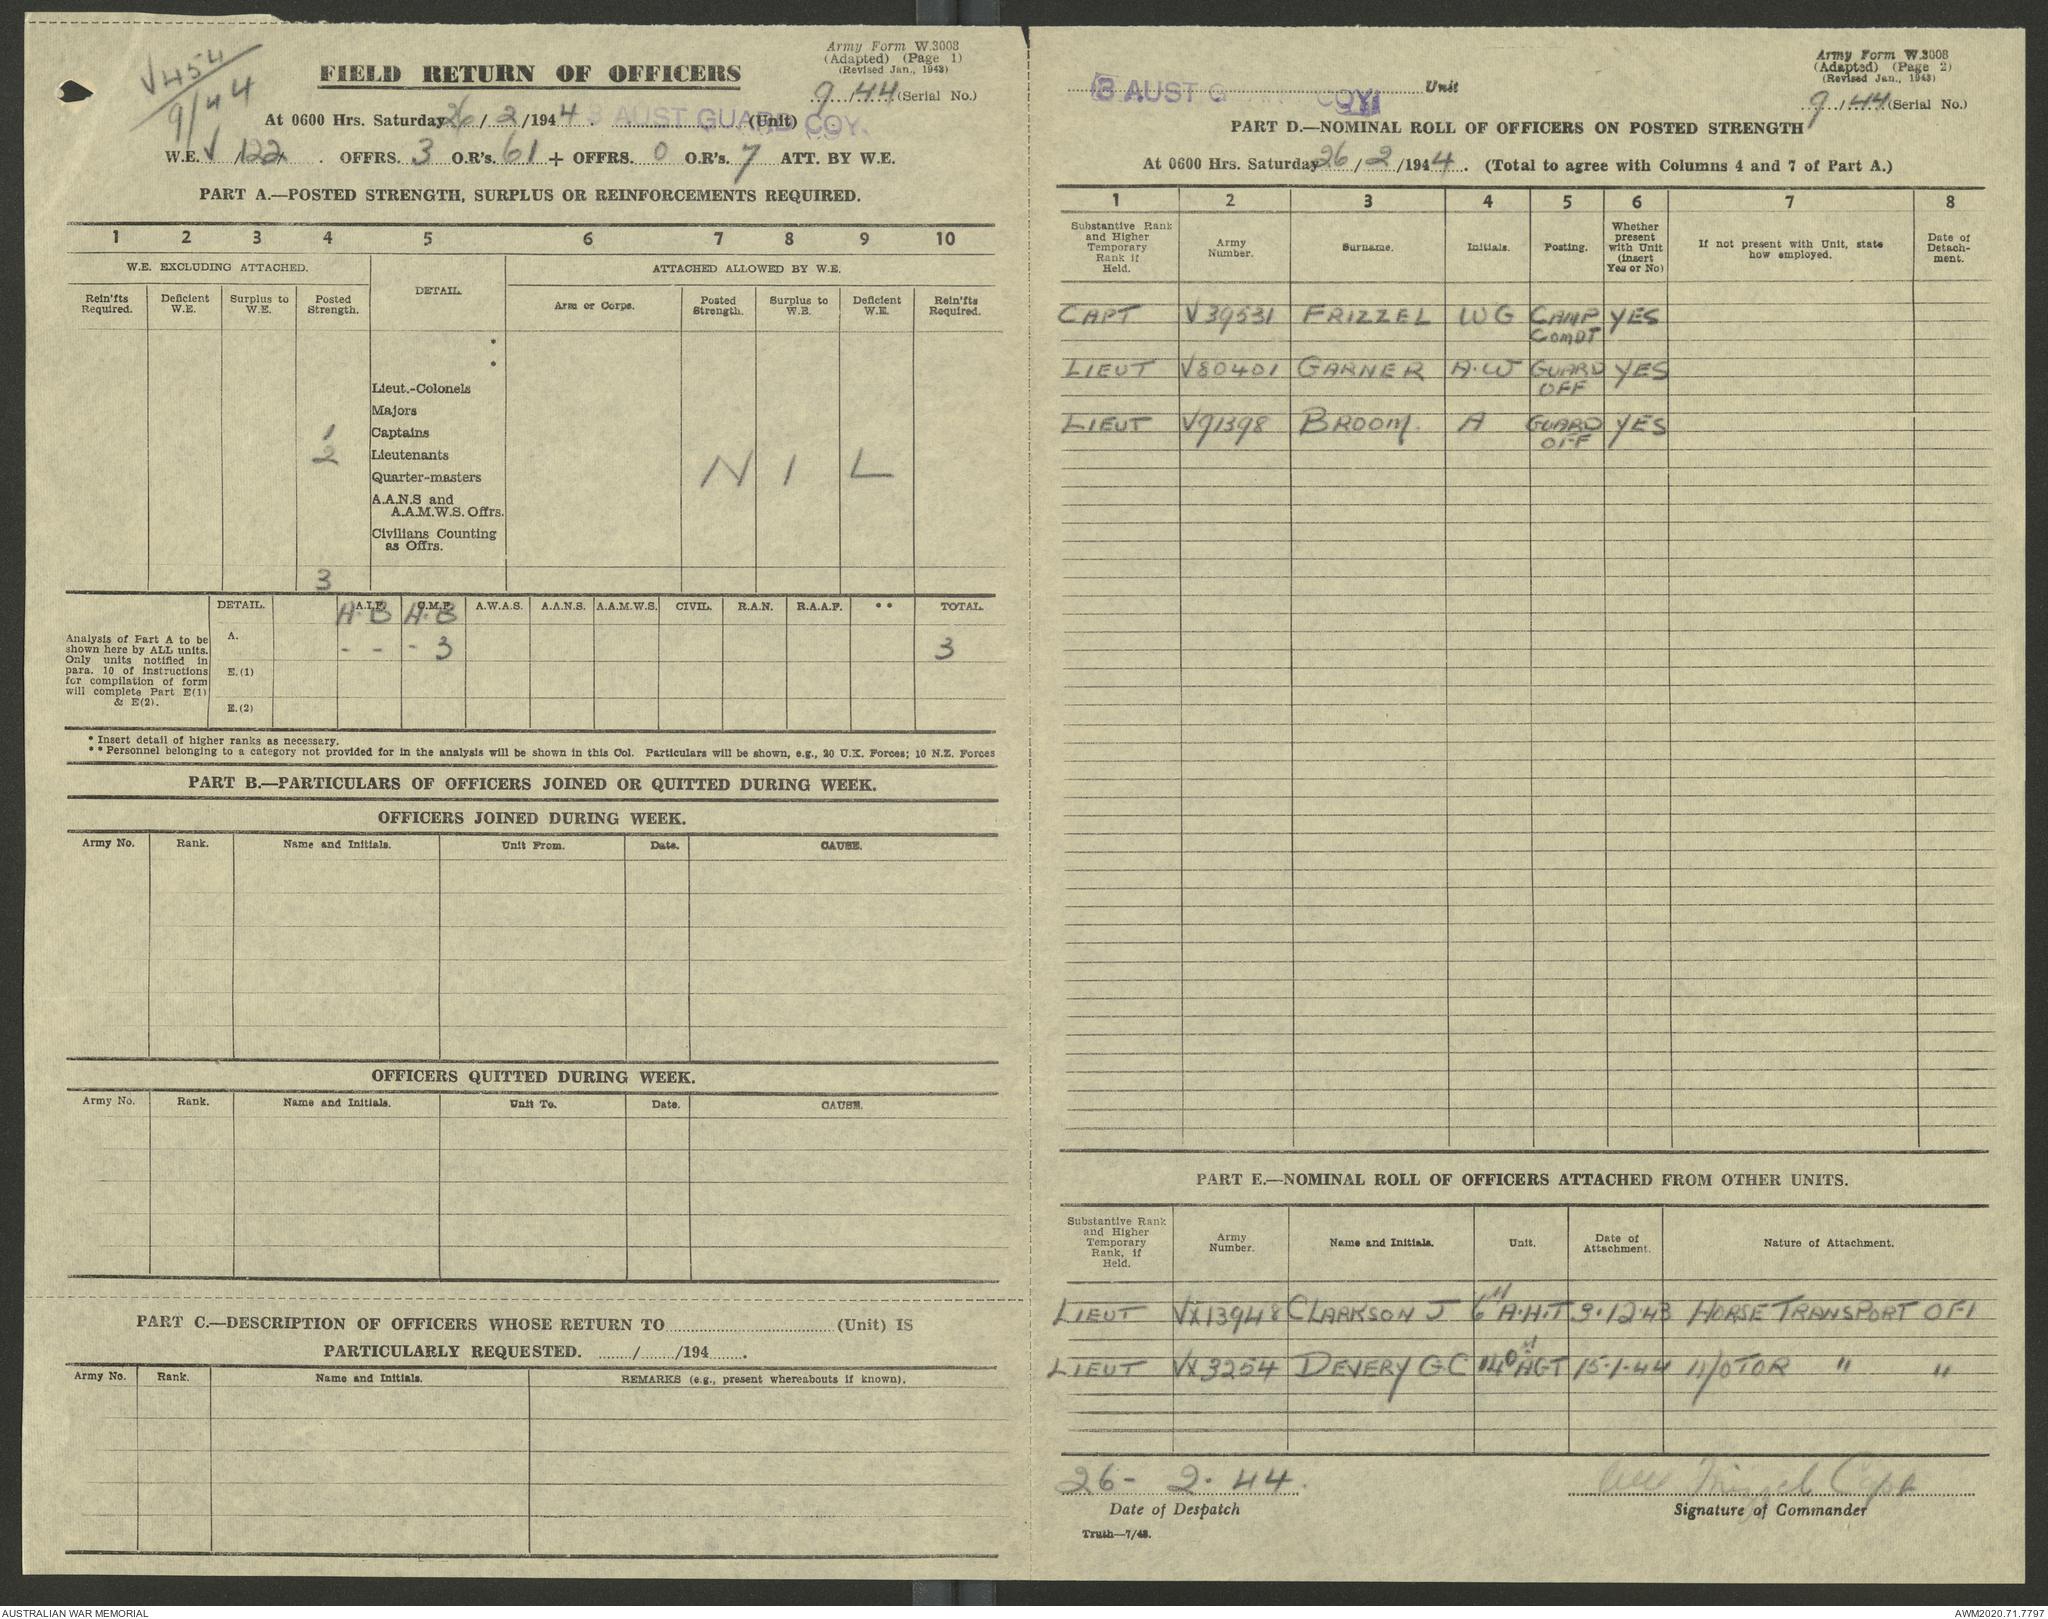 V454
9/44
Army Form W.3008
(Adapted) (Page 1)
(Revised Jan., 1943)
FIELD RETURN OF OFFICERS
9/44 (Serial No.)
At 0600 Hrs. Saturday 26/2/1944. 3 AUST GUARD COY. (Unit)
W.E. V 122. OFFRS. 3 O.R's. 61 + OFFRS. 0 O.R's. 7 ATT. BY W.E.
PART A.—POSTED STRENGTH, SURPLUS OR REINFORCEMENTS REQUIRED.
1 2 3 4 5 6 7 8 9 10
W.E. EXCLUDING ATTACHED. DETAIL. ATTACHED ALLOWED BY W.E.
Rein'fts Required. Deficient W.E. Surplus to W.E. Posted Strength. Arm or Corps. Posted Strength. Surplus to W.E. Deficient W.E. Rein'fts Required.
*
*
Lieut.-Colonels
Majors
1 Captains
2 Lieutenants
Quarter-masters N I L
A.A.N.S and
A.A.M.W.S. Offrs.
Civilians Counting
as Offrs.
3
DETAIL. A.I.F. C.M.F. A.W.A.S. A.A.N.S. A.A.M.W.S. CIVIL. R.A.N. R.A.A.F. ** TOTAL.
A. B A. B
A. - - - 3 3
Analysis of Part A to be
shown here by ALL units.
Only units notified in
para. 10 of instructions
for compilation of form
will complete Part E(1)
& E(2).
E.(1)
E.(2)
* Insert detail of higher ranks as necessary.
** Personnel belonging to a category not provided for in the analysis will be shown in this Col. Particulars will be shown, e.g., 20 U.K. Forces; 10 N.Z. Forces
PART B.—PARTICULARS OF OFFICERS JOINED OR QUITTED DURING WEEK.
OFFICERS JOINED DURING WEEK.
Army No. Rank. Name and Initials. Unit From. Date. CAUSE.
OFFICERS QUITTED DURING WEEK.
Army No. Rank. Name and Initials. Unit To. Date. CAUSE.
PART C.—DESCRIPTION OF OFFICERS WHOSE RETURN TO (Unit) IS
PARTICULARLY REQUESTED. / /194 .
Army No. Rank. Name and Initials. REMARKS (e.g., present whereabouts if known).
Army Form W.3008
(Adapted) (Page 2)
(Revised Jan., 1943)
3 AUST G COY Unit
9/44 (Serial No.)
PART D.—NOMINAL ROLL OF OFFICERS ON POSTED STRENGTH
At 0600 Hrs. Saturday 26/2/1944. (Total to agree with Columns 4 and 7 of Part A.)
1 2 3 4 5 6 7 8
Substantive Rank and Higher Temporary Rank if Held. Army Number. Surname. Initials. Posting. Whether present with Unit (insert Yes or No) If not present with Unit, state how employed. Date of Detachment.
CAPT V39531 FRIZZEL WG CAMP COMDT YES
LIEUT V80401 GARNER A.W GUARD OFF YES
LIEUT V91398 BROOM. A GUARD OFF YES
PART E.—NOMINAL ROLL OF OFFICERS ATTACHED FROM OTHER UNITS.
Substantive Rank and Higher Temporary Rank, if Held. Army Number. Name and Initials. Unit. Date of Attachment. Nature of Attachment.
LIEUT VX13948 CLARKSON J 6" A.H.T 3.12.43 HORSE TRANSPORT OFF
LIEUT VX3254 DEVERY GC 140 AGT 15-1-44 MOTOR " "
26 - 2. 44.
Date of Despatch
Frizzel Capt
Signature of Commander
Truth—7/43.
AUSTRALIAN WAR MEMORIAL
AWM2020.71.7797